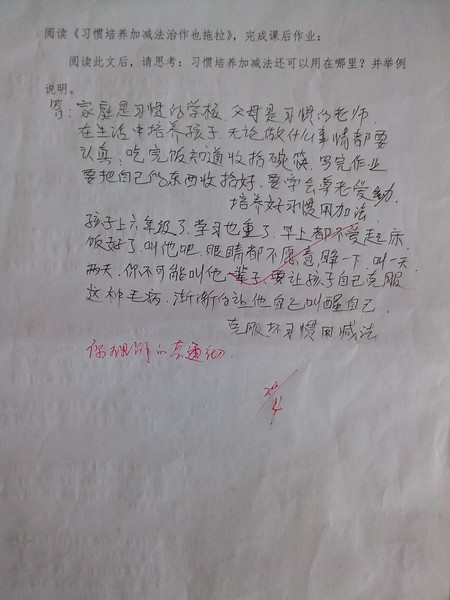 阅读《习惯培养加减法治作也拖拉》，完成课后作业：
阅读此文后，请思考：习惯培养加减法还可以用在哪里？并举例
说明。
答：家庭是习惯的学校，父母是习惯的老师.
在生活中培养孩子，无论做什么事情都要
认真，吃完饭知道收拾碗筷，写完作业
要把自己的东西收拾好，要学会尊老爱幼.
培养好习惯用加法.
孩子上六年级了，学习也重了，早上都不爱起床
饭好了，叫他吧，眼睛都不愿意睁一下，叫一天
两天，你不可能叫他一辈子，要让孩子自己克服
这种毛病，渐渐的让他自己叫醒自己.
克服坏习惯用减法
你理解的太通彻.